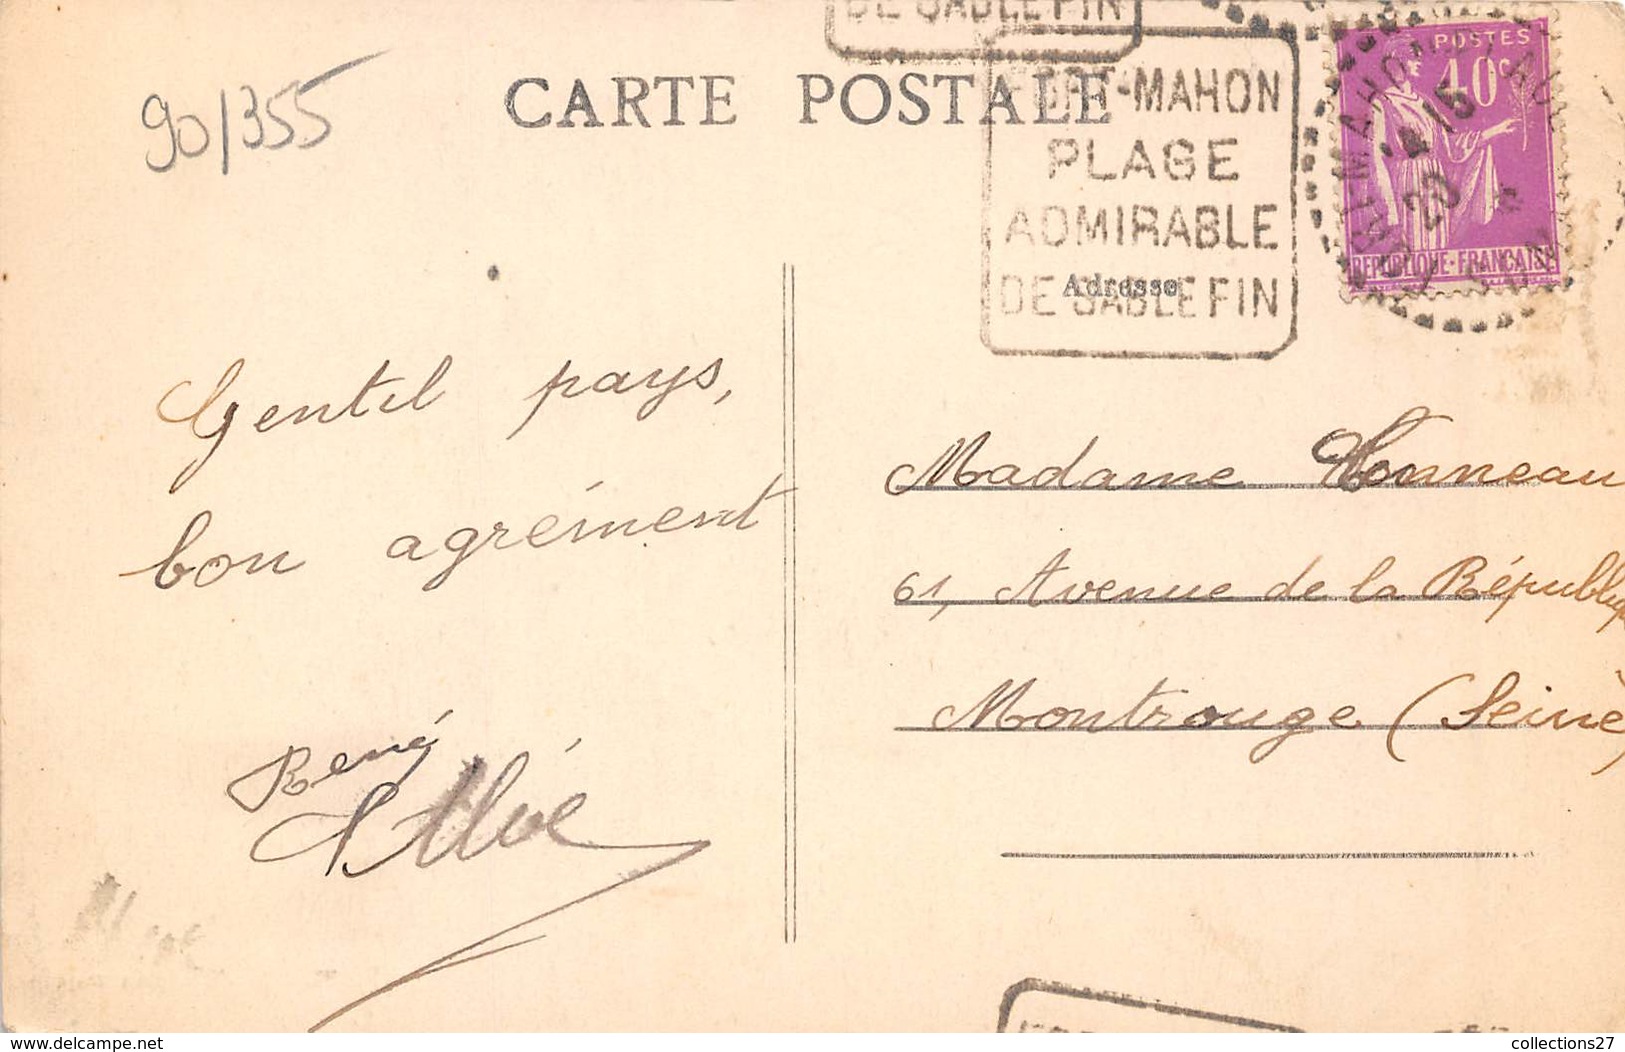 DE SABLE FIN
90/355
CARTE POSTALE
FORT-MAHON
PLAGE
ADMIRABLE
DE SABLE FIN
Adresse
POSTES
40c
REPUBLIQUE-FRANCAISE
Gentil pays,
bon agrément
René
Madame Honneau
61, Avenue de la République
Montrouge (Seine)
delcampe.net
collections27